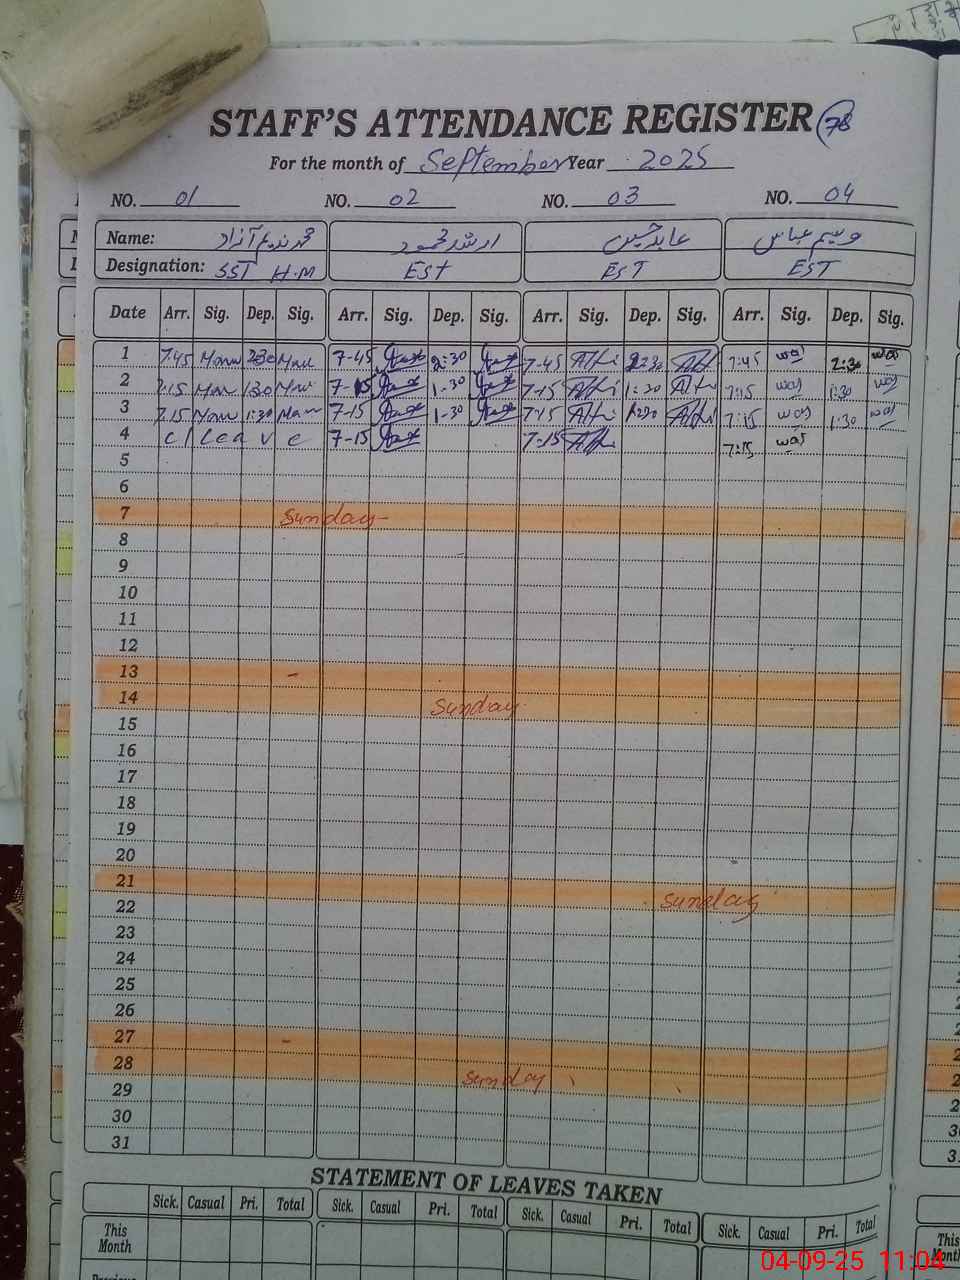 STAFF'S ATTENDANCE REGISTER 78
For the month of September Year 2025
NO. 01 NO. 02 NO. 03 NO. 04
Name: محمد ندیم آزاد ارشد محمود عابد حسین وسیم عباس
Designation: SST H.M EST EST EST
Date Arr. Sig. Dep. Sig. Arr. Sig. Dep. Sig. Arr. Sig. Dep. Sig. Arr. Sig. Dep. Sig.
1 7.45 2:30 7-45 2:30 7-45 2:30 7:45 was 2:30 was
2 7.15 1:30 7-15 1-30 7-15 1:30 7:15 was 1:30 was
3 7.15 1:30 7-15 1-30 7:15 1:30 7:15 was 1:30 was
4 c/ Leave 7-15 7-15 7:15 was
5
6
7 Sunday
8
9
10
11
12
13 -
14 Sunday
15
16
17
18
19
20
21 Sunday
22
23
24
25
26
27 -
28 Sunday
29
30
31
STATEMENT OF LEAVES TAKEN
Sick. Casual Pri. Total Sick. Casual Pri. Total Sick. Casual Pri. Total Sick. Casual Pri. Total
This Month
04-09-25 11:04